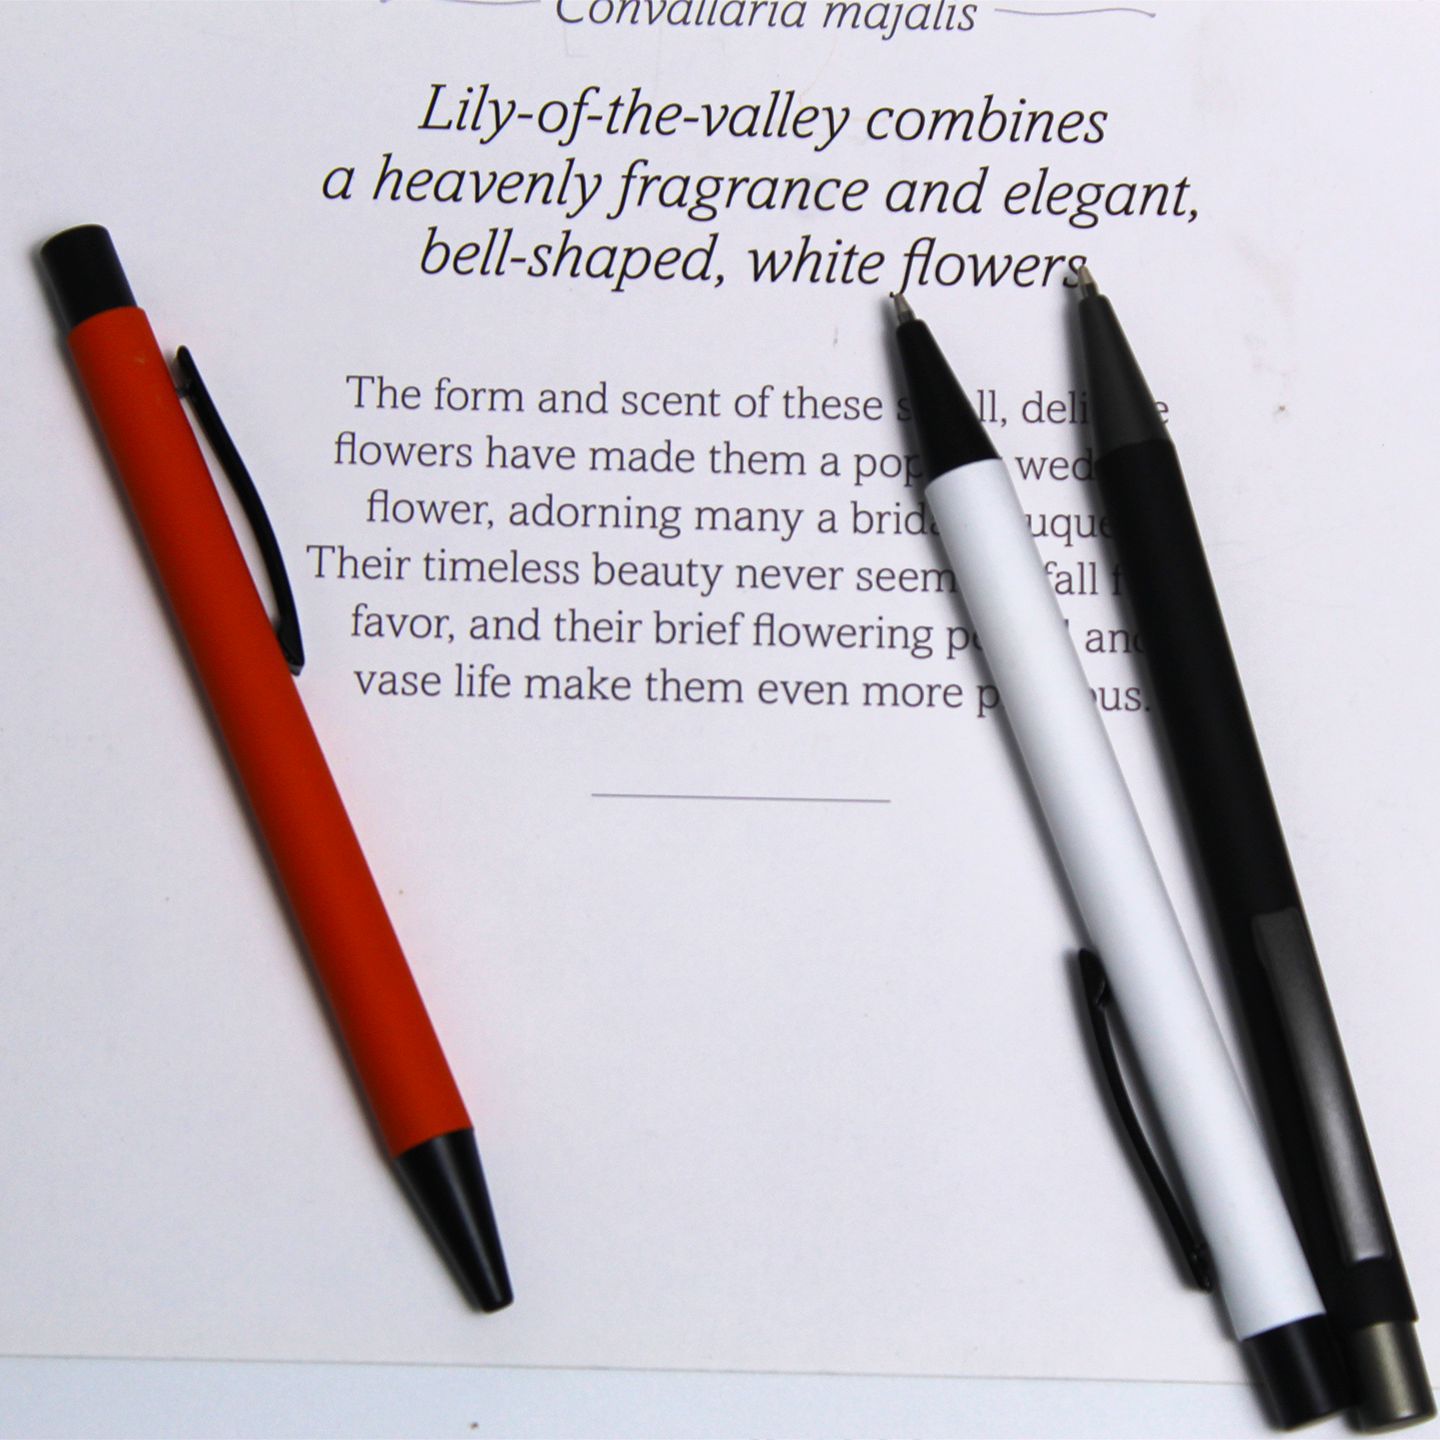 Convallaria majalis
Lily-of-the-valley combines
a heavenly fragrance and elegant,
bell-shaped, white flowers
The form and scent of these
flowers have made them a
flower, adorning many a
Their timeless beauty never fall
favor, and their brief flowering
vase life make them even more